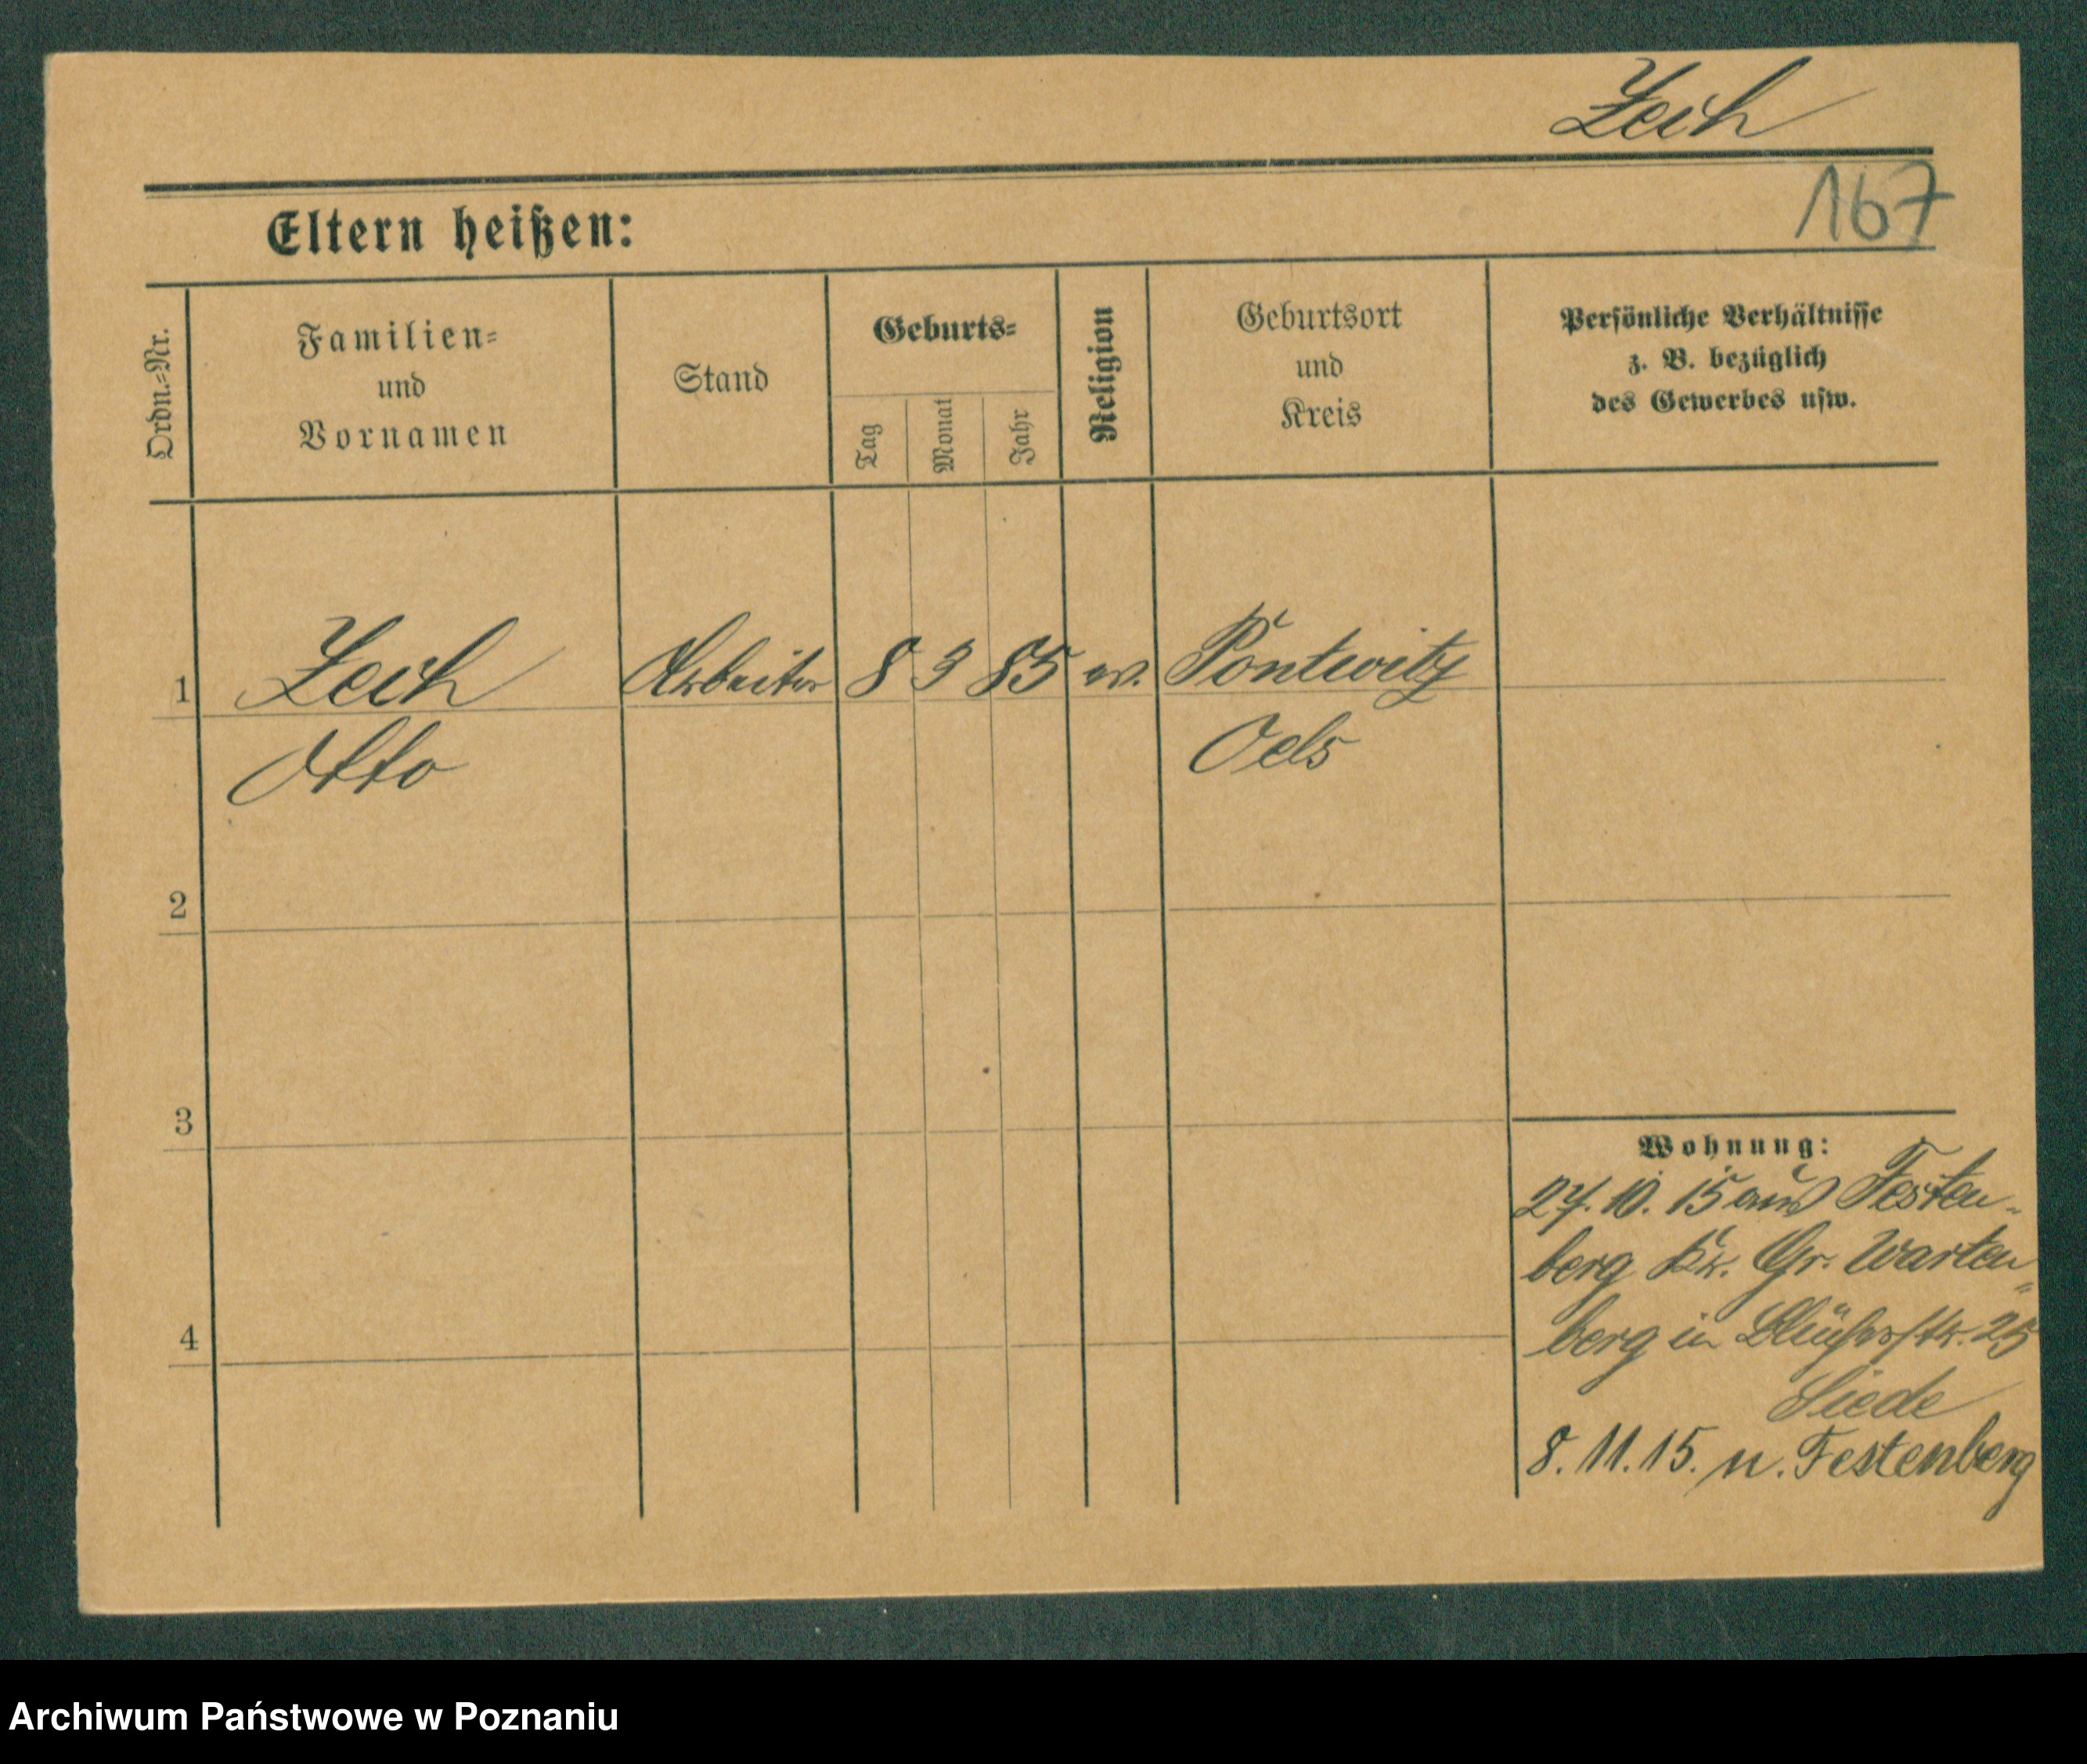 Zech
167
Eltern heißen:
Ordn.=Nr.
Familien=
und
Vornamen
Stand
Geburts=
Tag
Monat
Jahr
Religion
Geburtsort
und
Kreis
Persönliche Verhältnisse
z. B. bezüglich
des Gewerbes usw.
1
Zech
Arbeiter
8 3 85
ev.
Pontwitz
Otto
Oels
2
3
4
Wohnung:
27. 10. 15 aus Festen-
berg Kr. Gr. Warten-
berg in Blücherstr. 25
8. 11. 15. n. Festenberg
Archiwum Państwowe w Poznaniu